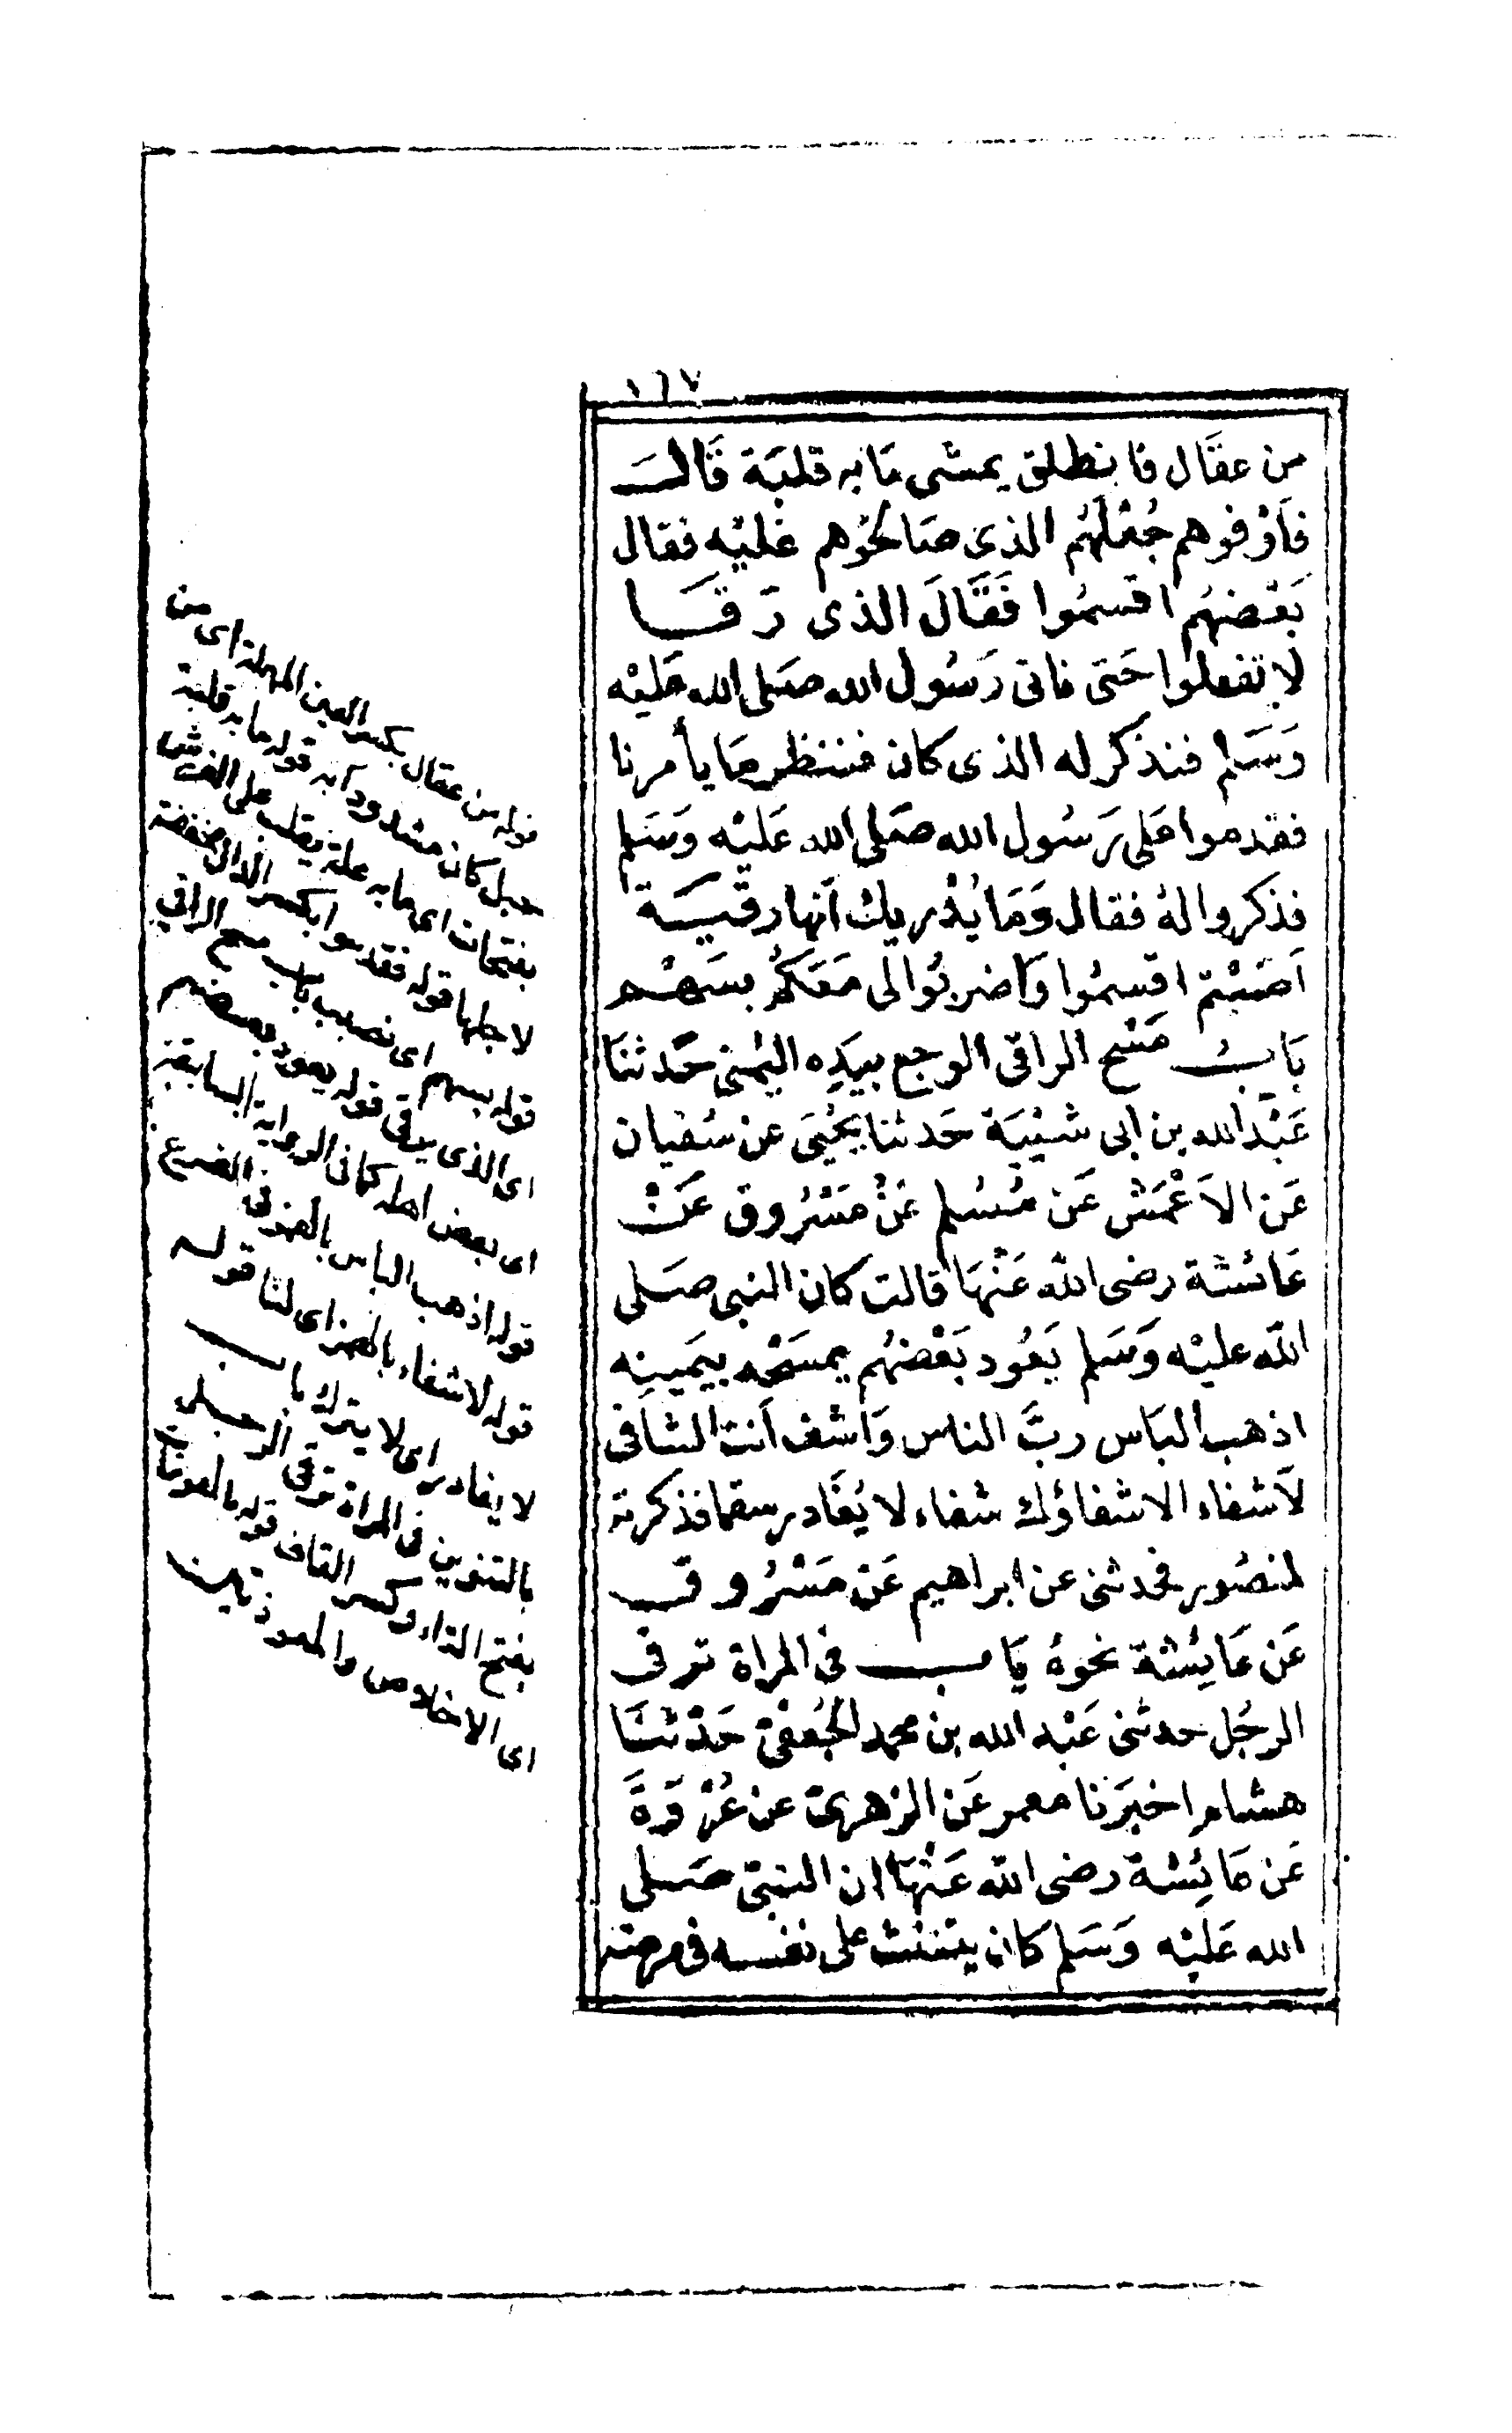 ١٦٧
من عقَال فانطلق يمشى مَا به قلبَة قَالَ
فَأوْفوهم جُعْلَهُم الذى صَالحوُهم عَليْه فقال
بَعْضهُم اقسمُوا فَقَالَ الذى رَقَا
لا تفعلوا حَتى ناتى رَسُول الله صَلى الله عَليْه
وَسَلم فنذكر له الذى كان فننظر مَا يأمرنا
فقدموا عَلى رَسُول الله صَلى الله عَليْه وَسَلم
فذكروا لهُ فقال وَمَا يُدْريك أنها رقيَة
اَصَبْتم اقسمُوا وَاضربُوا لى مَعَكمُ بسَهْم
بَابُ مَسْح الراقى الوجع بيَدِه اليُمنى حَدثنَا
عَبْد الله بن ابى شيْبَة حَدثنا يَحْيَى عن سُفيان
عَن الاَعْمَش عَن مُسْلم عَنْ مَسْرُوق عَنْ
عَائشة رضى الله عَنْهَا قالت كان النبى صَلى
الله عليْه وَسَلم يَعُود بَعْضهُم يمسَحْه بيَمينِه
اذهب البَاس ربَّ الناس وَاشف اَنت الشافى
لاَ شفاء الا شفاؤك شفاء لا يُغَادر سقما فذكرته
لمنصُور فحدثنى عن ابراهيم عَن مَسْرُوق
عَن عَايِشة نحوهُ بَاب فى المراة ترقى
الرجُل حدثنى عَبْد الله بن محمد الجُعفىّ حَدّثنَا
هشام اخبَرَنا معمر عَن الزهرىّ عن عُرْوَةَ
عَن عَايِشة رضى الله عَنْهَا ان النبىّ صَلى
الله عَليْه وَسَلم كان ينفث على نفسه فى مرضه
قوله من عقال بكسر العين المهملة اى من
حبل كان مشدودا به قوله ما به قلبة
بفتحات اى ما به علة يقلب على الفراش
لاجلها قوله فقدموا بكسر الدال مخففة
قوله بسهم اى نصيب باب مسح الراقي
اى الذى يرقى قوله يعود بعضهم
اى بعض اهله كما فى الرواية السابقة
قوله اذهب الباس بالهمز فى الفرع
قوله لا شفاء بالهمز اى لنا قوله
لا يغادر اى لا يترك باب
بالتنوين فى المراة ترقى الرجل
بفتح التاء وكسر القاف قوله بالمعوذات
اى الاخلاص والمعوذتين